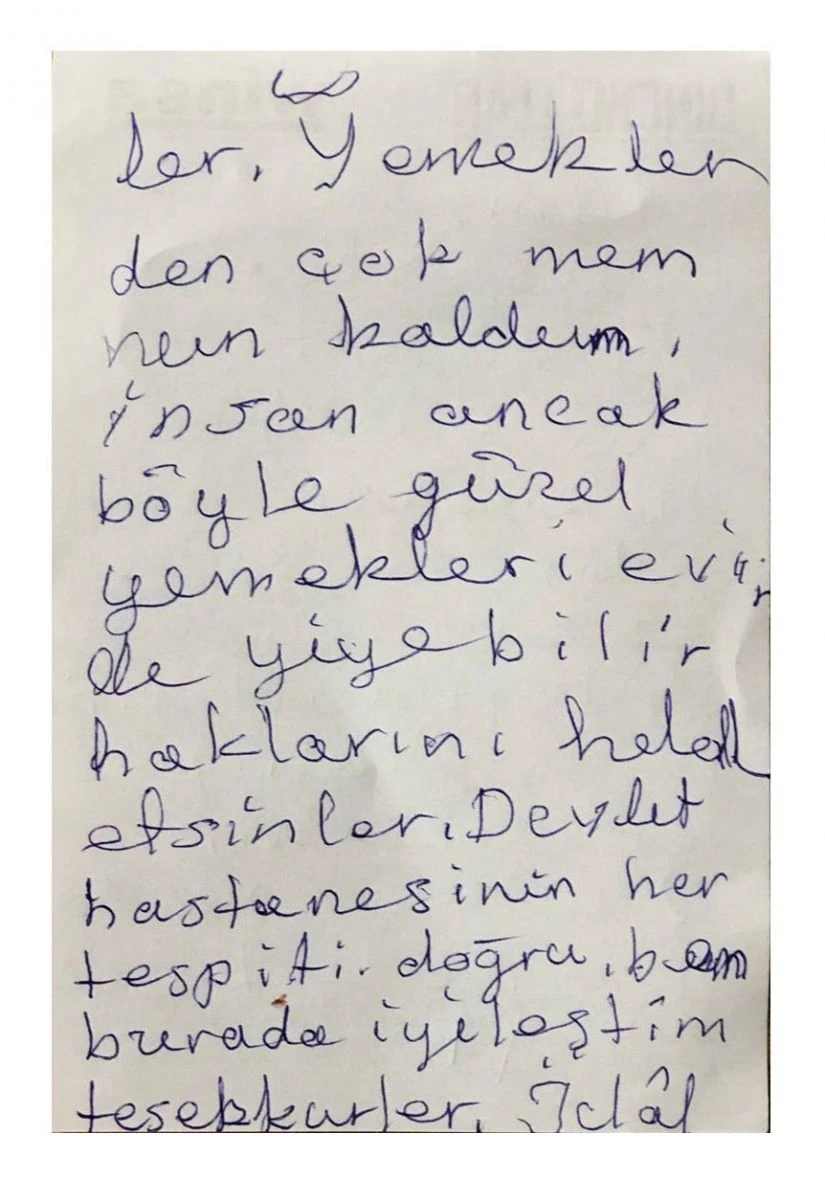 ler. Yemekler
den çok mem
nun kaldım,
insan ancak
böyle güzel
yemekleri evin
de yiyebilir
haklarını helal
etsinler. Devlet
hastanesinin her
tespiti. doğru, ben
burada iyileştim
teşekkürler. İclâl